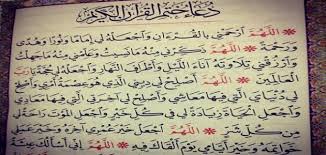 دُعَاءُ خَتْمِ الْقُرْآنِ الْكَرِيمِ
اللَّهُمَّ ارْحَمْنِي بِالْقُرْءَانِ وَاجْعَلْهُ لِي إِمَامًا وَنُورًا وَهُدًى
وَرَحْمَةً اللَّهُمَّ ذَكِّرْنِي مِنْهُ مَانَسِيتُ وَعَلِّمْنِي مِنْهُ مَاجَهِلْتُ
وَارْزُقْنِي تِلَاوَتَهُ آنَاءَ اللَّيْلِ وَأَطْرَافَ النَّهَارِ وَاجْعَلْهُ لِي حُجَّةً يَارَبَّ
الْعَالَمِينَ اللَّهُمَّ أَصْلِحْ لِي دِينِي الَّذِي هُوَ عِصْمَةُ أَمْرِي وَأَصْلِحْ
لِي دُنْيَايَ الَّتِي فِيهَا مَعَاشِي وَأَصْلِحْ لِي آخِرَتِي الَّتِي فِيهَا مَعَادِي
وَاجْعَلِ الْحَيَاةَ زِيَادَةً لِي فِي كُلِّ خَيْرٍ وَاجْعَلِ الْمَوْتَ رَاحَةً لِي
مِنْ كُلِّ شَرٍّ اللَّهُمَّ اجْعَلْ خَيْرَ عُمْرِي آخِرَهُ وَخَيْرَ عَمَلِي
خَوَاتِمَهُ وَخَيْرَ أَيَّامِي يَوْمَ أَلْقَاكَ فِيهِ اللَّهُمَّ إِنِّي أَسْأَلُكَ عِيشَةً